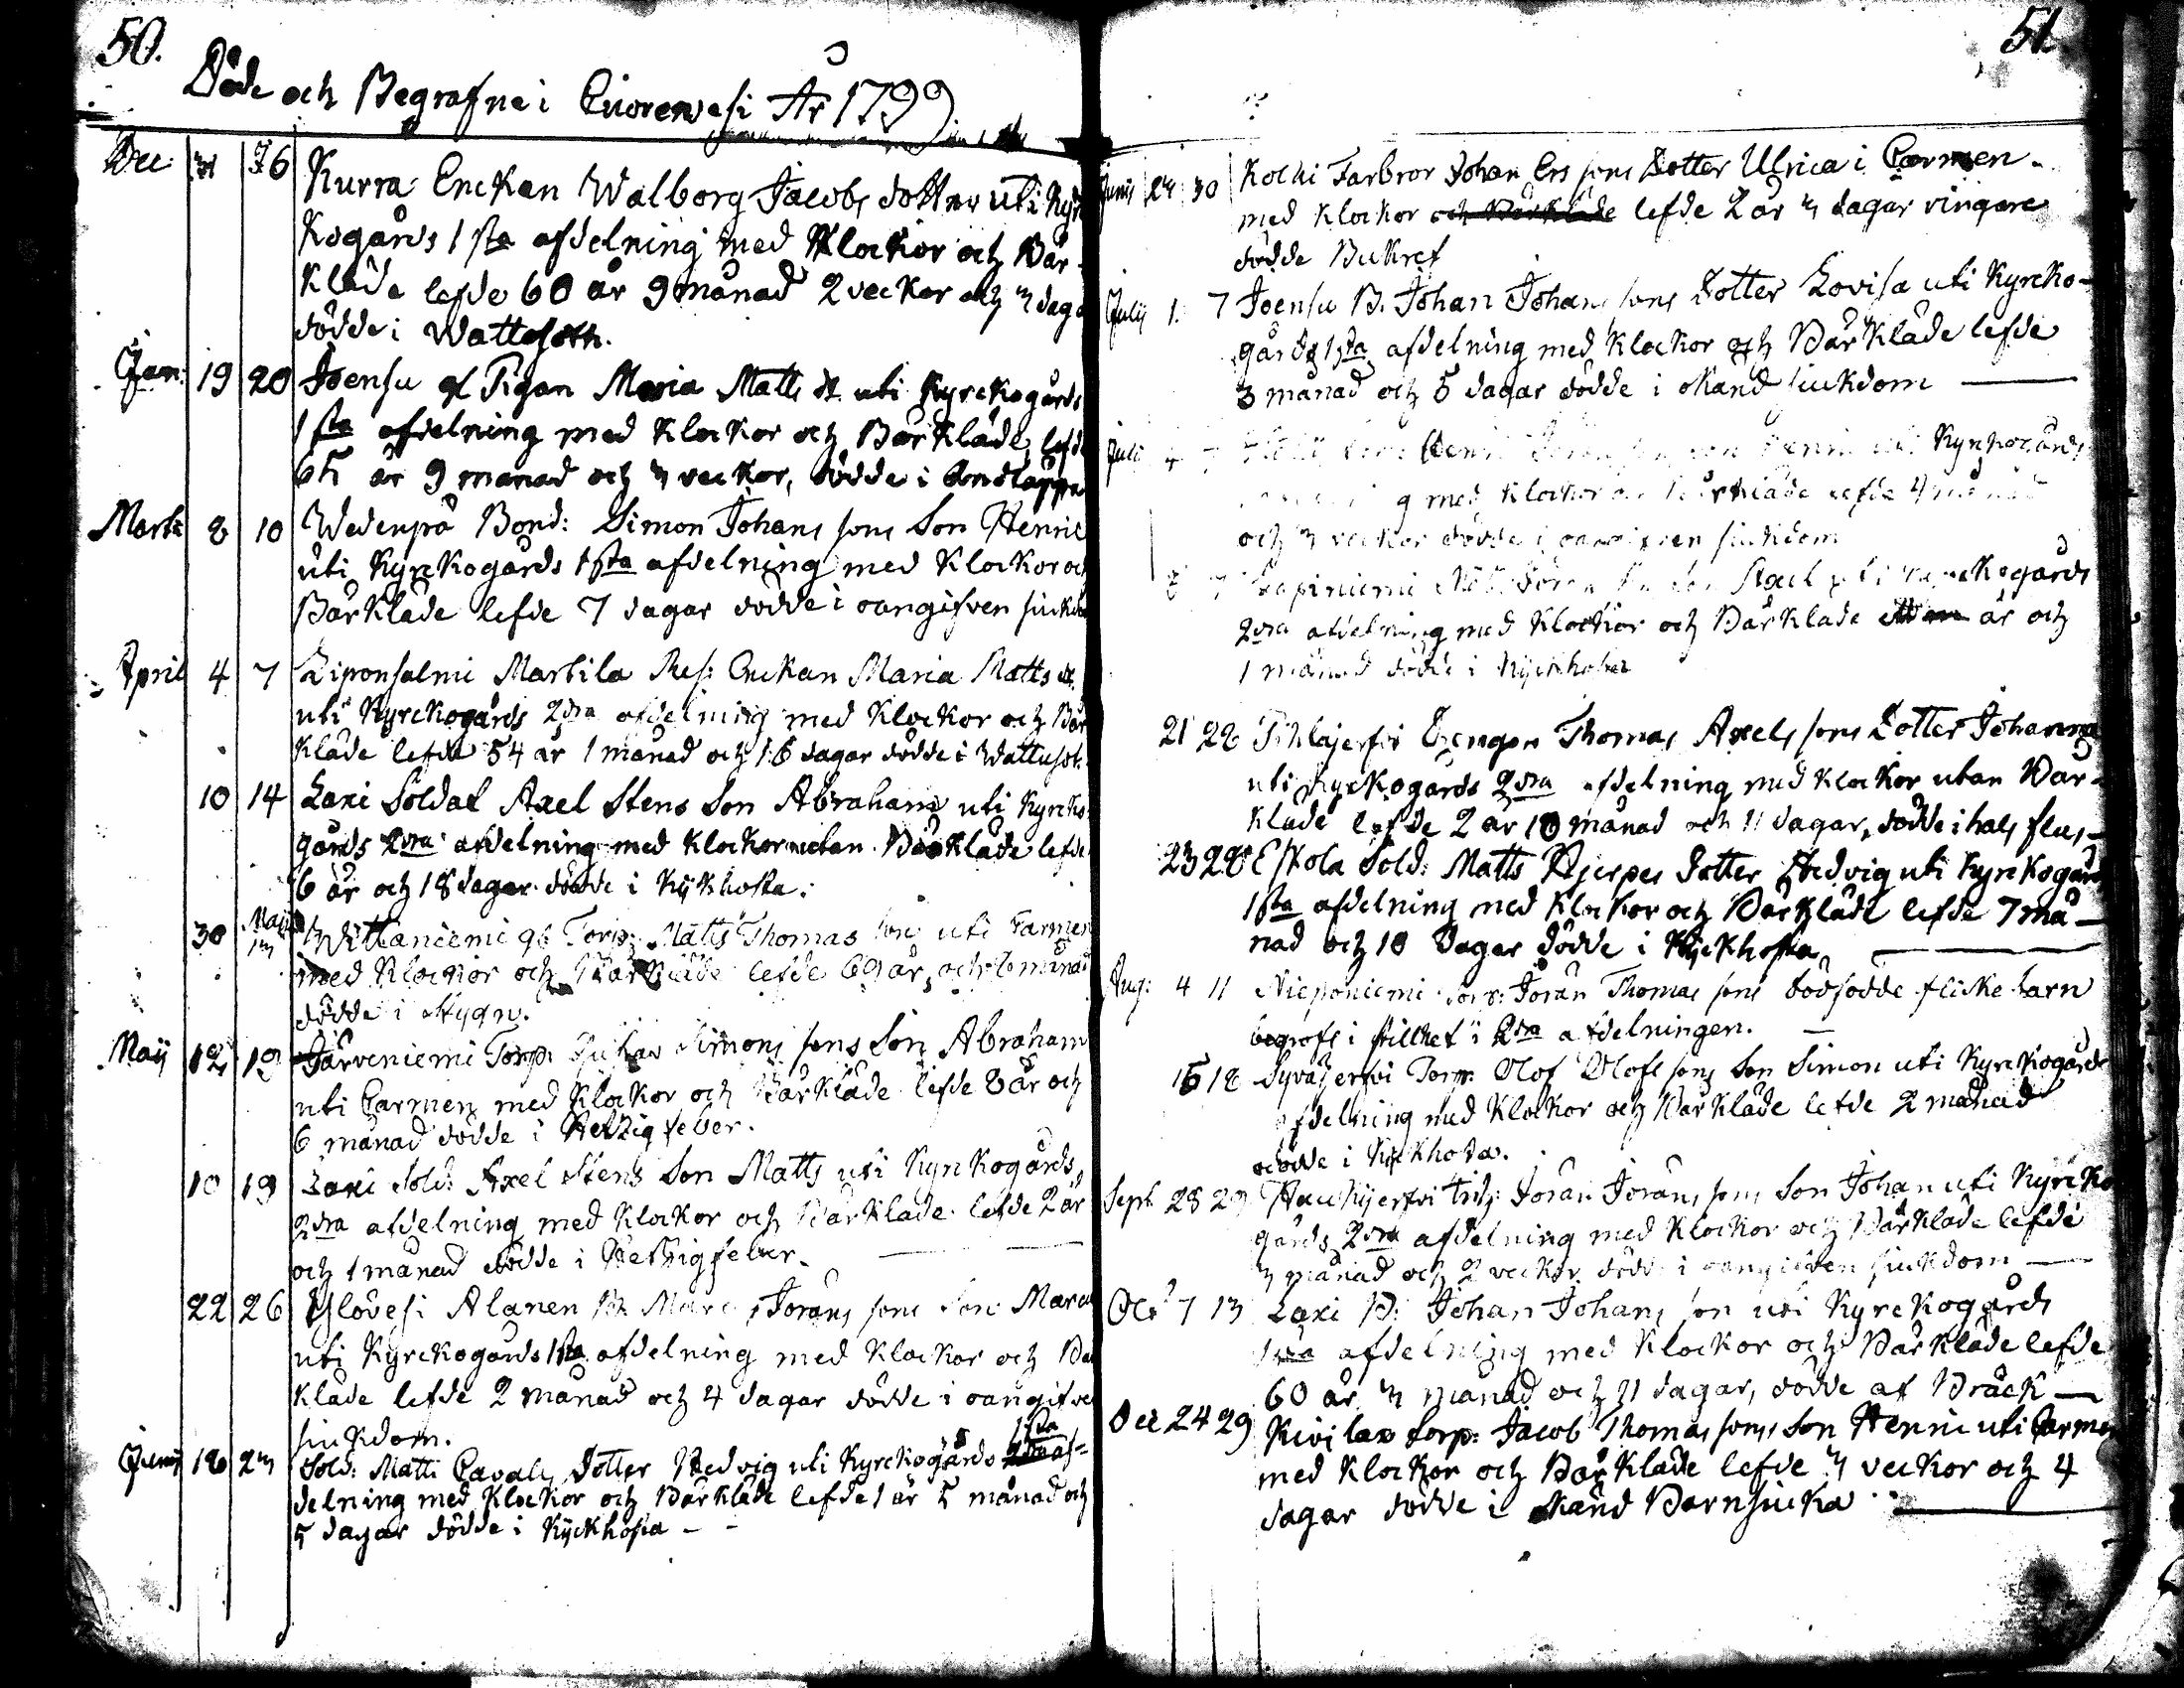 50.
Döde och Begrafne i Cuorewesi År 1799
Dec: 31 6 Kurra Enckan Walborg Jacobs dotter uti Kyr
kogårds 1sta afdelning med Klockor och Bår-
kläde lefde 60 år 9 månad 2 veckor och 3 daga
dödde i Wattusoth.
Jan: 19 20 Joensu gl Pigan Maria Matts dt. uti Kyrckogårds
1sta afdelning med Klockor och Bårkläde, lefde
65 år 9 månad och 3 veckor, dödde i Andtäppa
Marti 8 10 Wedenpä Bond: Simon Johans sons Son Henric
uti Kyrckogårds 1sta afdelning med Klockor och
Bårkläde lefde 7 dagar dödde i oangifven siukdo
April 4 7 Liponsalmi Martila Enckan Maria Matts dt.
uti Kyrckogårds 2dra afdelning med Klockor och Bår
kläde lefde 54 år 1 månad och 16 dagar dödde i Wattusot.
10 14 Laxi Soldat Axel Stens Son Abraham uti Kyrcko
gårds 2dra afdelning med Klockor utan Bårkläde lefde
6 år och 18 dagar dödde i Kijkhosta.
30 Maij 13 Wittaniemi gl Torp: Matts Thomas son uti Carmen
med Klockor och Bårkläde lefde 69 år, och månad
dödde i Stygn.
Maij 12 19 Järveniemi Torp: Simons sons Son Abraham
uti Carmen med Klockor och Bårkläde lefde 8 år och
6 månad dödde i Hetzig feber.
10 19 Laxi Sold: Axel Stens Son Matts uti Kyrckogårds
2dra afdelning med Klockor och Bårkläde lefde 2 år
och 1 månad dödde i Hetzigfeber.
22 26 Ylövesi Alanen B. Marc Jörans sons Son Marc
uti Kyrckogårds 1sta afdelning med Klockor och Bår
kläde lefde 2 månad och 4 dagar dödde i oangifve
siukdom.
Junij 18 23 Sold: Matti Pavals Dotter Hedvig uti Kyrckogårds 1sta af-
delning med Klockor och Bårkläde lefde 1 år 5 månad och
5 dagar dödde i Kijckhosta
51.
Junij 24 30 Farbror Johan Ers sons Dotter Ulrica i Carmen
med Klockor och Bårkläde lefde 2 år 3 dagar ringare
dödde Bukref
Julij 1. 7 Joensu B. Johan Johans sons Dotter Lovisa uti Kyrcko-
gårds 1sta afdelning med Klockor och Bårkläde lefde
3 månad och 5 dagar dödde i okänd siukdom
Juli 4 7 Kyrckogårds
g med Klockor och Bårkläde lefde 4 månad
och 3 veckor dödde i oangifven siukdom
7 Axel uti Kyrckogårds
2dra afdelning med Klockor och Bårkläde år och
1 månad dödde i Kijckhosta
21 28 Pihlajerfvi Drengen Thomas Axels sons Dotter Johanna
uti Kyrckogårds 2dra afdelning med Klockor utan Bår-
kläde lefde 2 år 10 månad och 11 dagar, dödde i hals flus
23 28 Eskola Sold: Matts Hjerpes Dotter Hedvig uti Kyrckogård
1sta afdelning med Klockor och Bårkläde lefde 7 må-
nad och 10 dagar dödde i Kijckhosta
Aug: 4 11 Nieponiemi Torp: Jöran Thomas sons dödfödde flicke barn
begrofs i stillhet i 2dra afdelningen.
15 18 Syväjerfvi Torp: Olof Olofs sons Son Simon uti Kyrckogårds
afdelning med Klockor och Bårkläde lefde 2 månad
dödde i Kijckhosta.
Sept 28 29 Haukijerfvi Jöran Jörans sons Son Johan uti Kyrcko
gårds 2dra afdelning med Klockor och Bårkläde lefde
3 månad och 2 veckor dödde i oangifven siukdom
Oct 7 13 Laxi B: Johan Johans son uti Kyrckogårds
afdelning med Klockor och Bårkläde lefde
60 år 3 månad och 11 dagar, dödde af Bråck
Dec 24 29 Kivilax Torp: Jacob Thomas sons Son Henric uti Carmen
med Klockor och Bårkläde lefde 3 veckor och 4
dagar dödde i okänd Barnsiucka